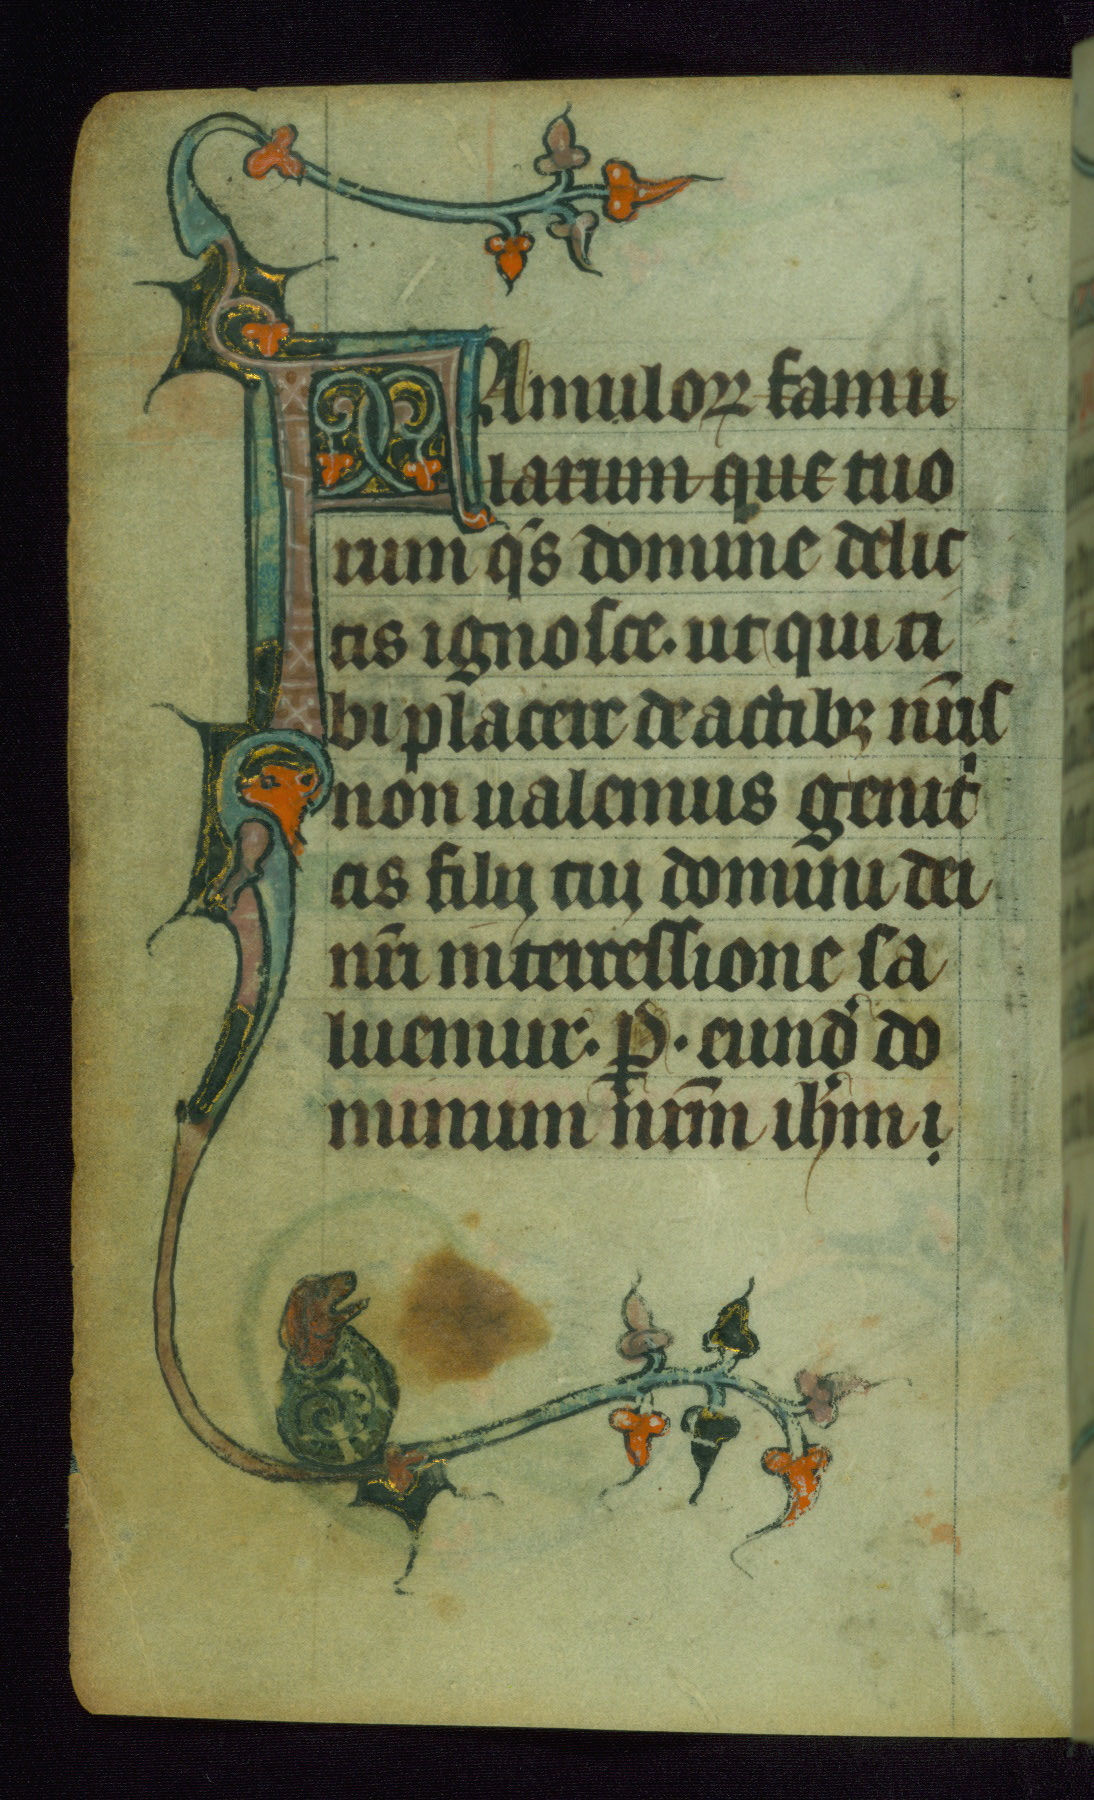 FAmuloꝝ famu
larum que tuo
rum qs̄ domine delic
tis ignosce. ut qui ti
bi placere de actibꝫ nr̄is
non ualemus genit̾
cis filij tui domini dei
nr̄i intercessione sa
luemur. P̱. eund̾ do
minum nrm̄ ihm̄ i